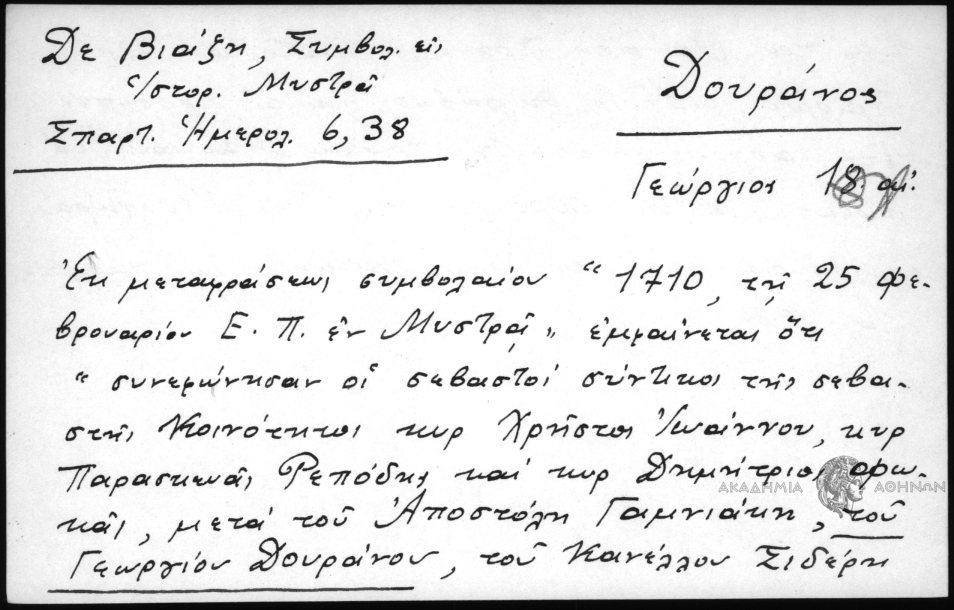 Δε Βιάζη, Συμβολ. εις
Ἱστορ. Μυστρᾶ
Σπαρτ. Ἡμερολ. 6, 38
Δουράνος
Γεώργιος 18 αἰ.
Ἐκ μεταφράσεως συμβολαίου “1710, τῇ 25 Φε-
βρουαρίου Ε. Π. ἐν Μυστρᾷ„ ἐμφαίνεται ὅτι
“συνεφώνησαν οἱ σεβαστοί σύντικοι τῆς σεβα-
στῆς Κοινότητος κυρ Χρῆστος Ἰωάννου, κυρ
Παρασκευᾶς Ρεπόδης καί κυρ Δημήτριος
ΑΚΑΔΗΜΙΑ ΑΘΗΝΩΝ
κᾶς, μετά τοῦ Ἀποστόλη Γαμνιάκη, τοῦ
Γεωργίου Δουράνου, τοῦ Κανέλλου Σιδέρη